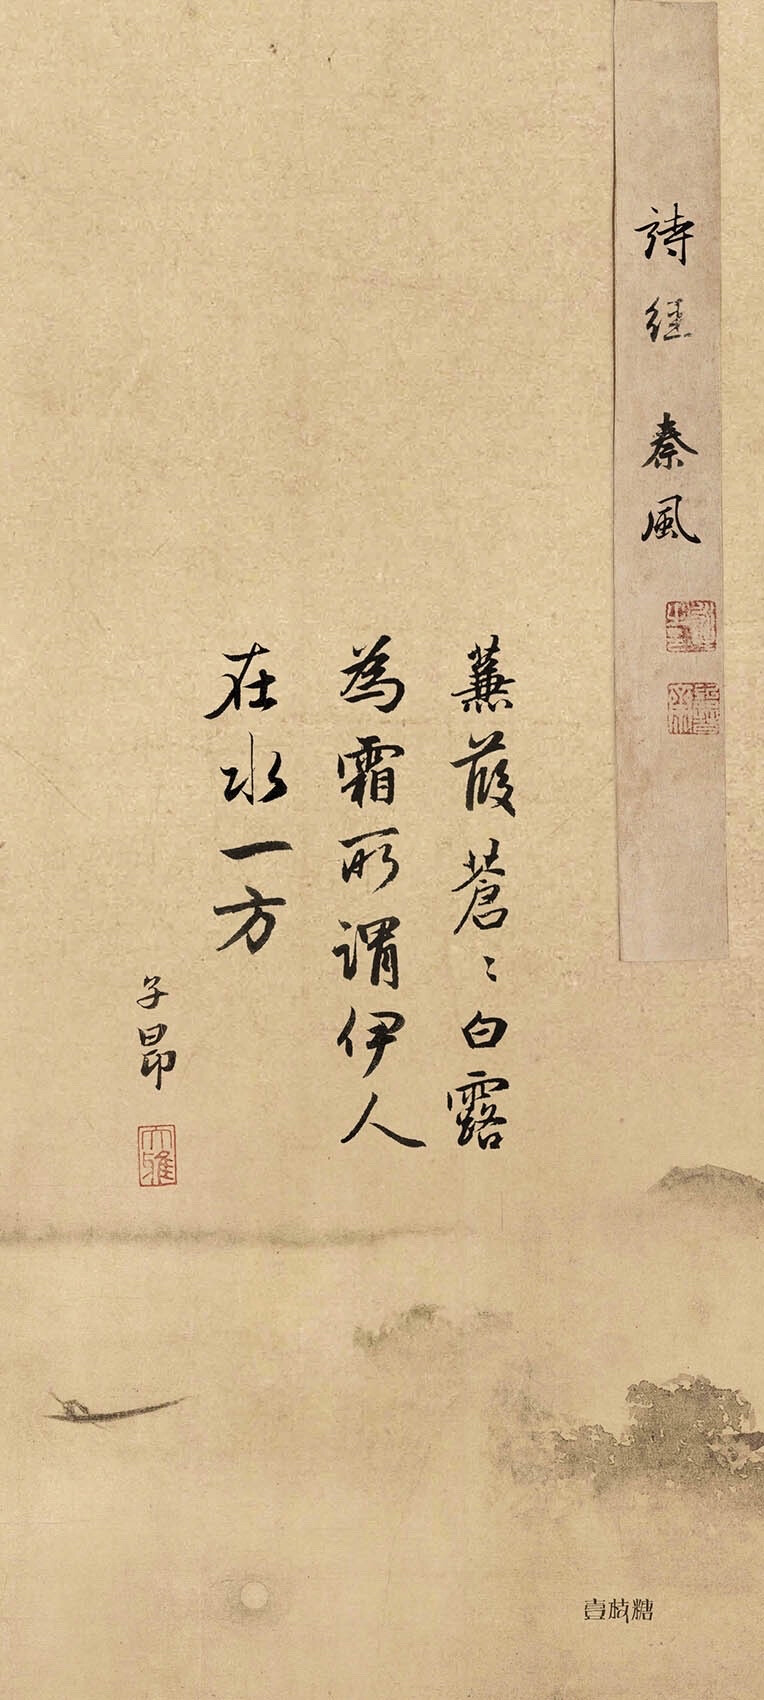 詩經 秦風
蒹葭蒼〻白露
為霜所謂伊人
在水一方
子昂
大雅
壹枝糖